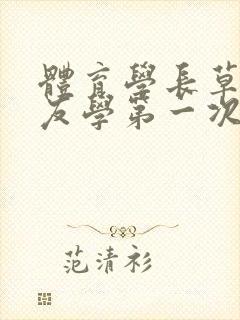 體育學長草
友學第一次
范清衫